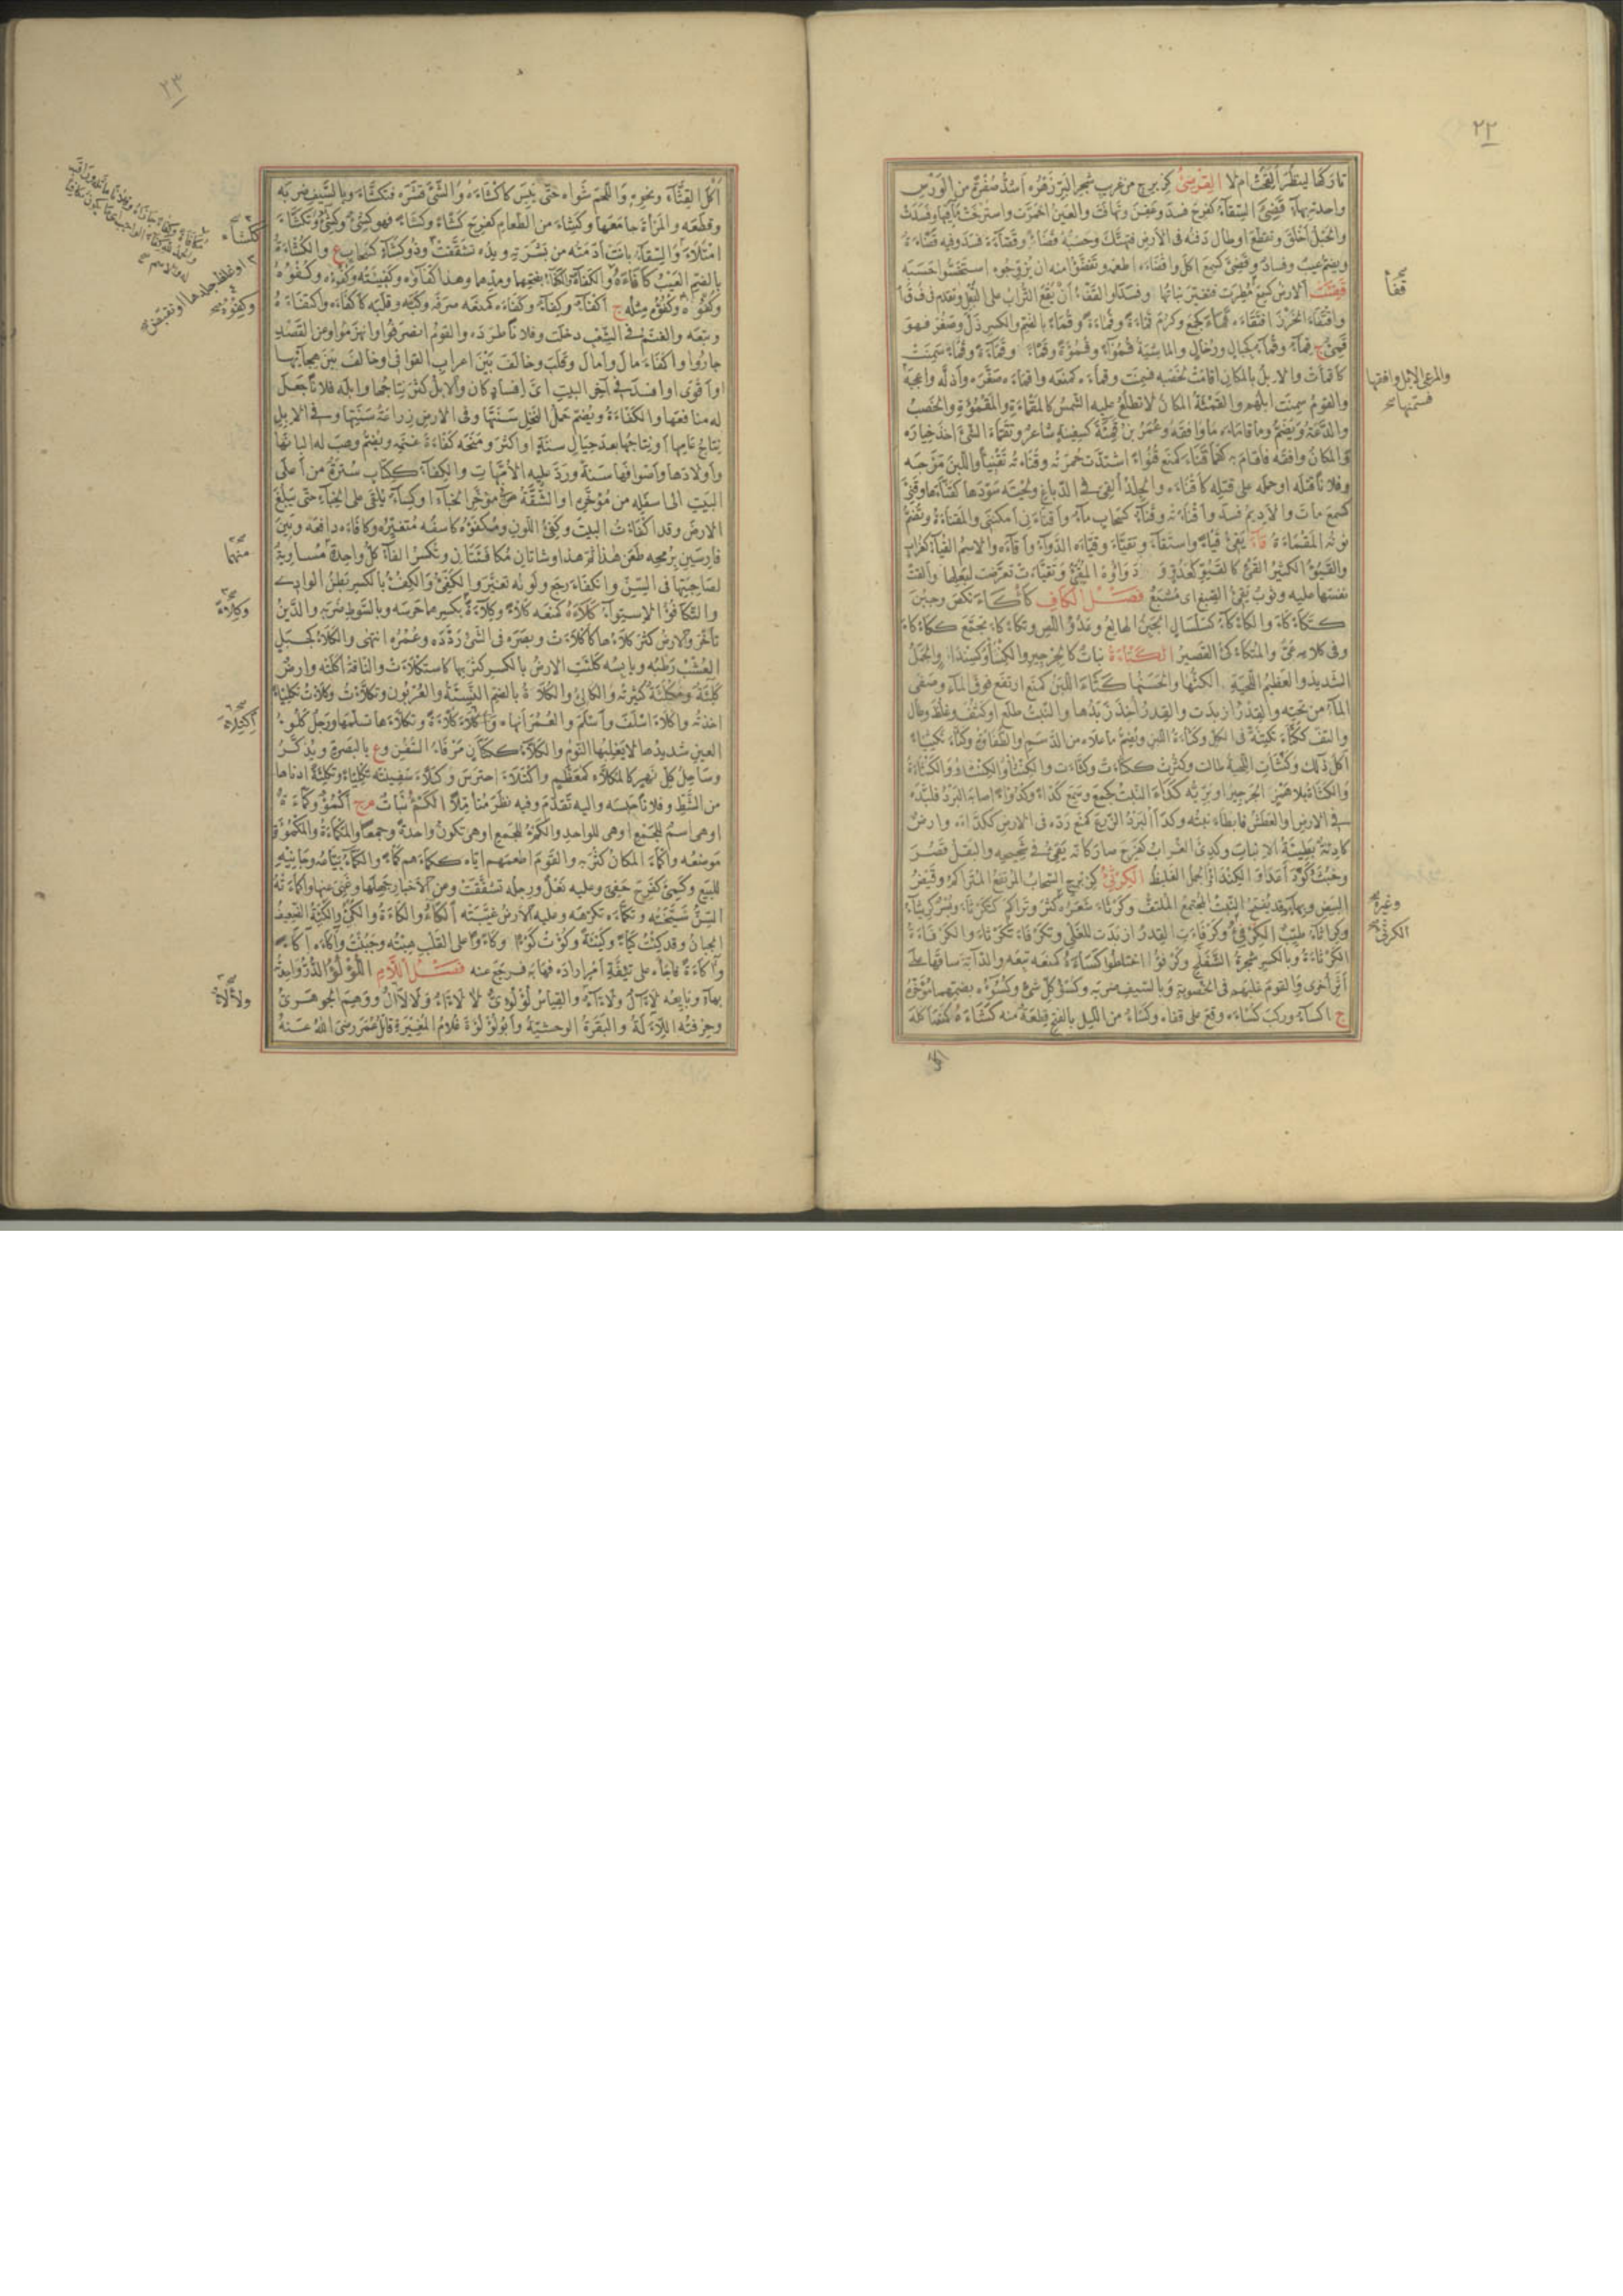 ٢٢
تاركها لينظر أيخثر أم لا القرضئ كزبرج من غريب شجر البر زهره أشد صفرة من الورس
واحدته بهاء قضئ السقاء كفرح فسد وعفن وتهافت والعين احمرت واسترخت مآقيها وفسدت
والحبل أخلق وتقطع أو طال دفنه في الأرض فتهتك وحسبه قضأ وقضاءة فسد وفيه قضأة
ويضم عيب وفساد وقضئ كسمع أكل وأقضأه أطعمه وتقضؤوا منه أن يزوجوه استخسوا حسبه
قفئت الأرض كسمع مطرت فتغير نباتها وفسد أو القفء أن يقع التراب على البقل
واقتفأ الخرز افتقأه قمأ كجمع وكرم قمأة وقماءة وقماء بالضم والكسر ذل وصغر فهو
قمئ ج قماء وقماء كجبال ورخال والماشية قموءا وقموءة وقمأ وقماءة وقماء سمنت
كأقمأت والإبل بالمكان أقامت لخصبه فسمنت وقمأه كمنعه وأقمأه صغره وأذله وأعجبه
والقوم سمنت إبلهم والقمأة المكان لا تطلع عليه الشمس كالمقمأة والمقمؤة والخصب
والدعة ويضم وما قامأه ما وافقه وعمرو بن قميئة كسفينة شاعر وتقمأ الشئ أخذ خياره
والمكان وافقه فأقام به كقمأ قنأ كمنع قنوءا اشتدت حمرته وقنأه تقنيئا واللبن مزجه
وفلانا قتله أو حمله على قتله كأقنأه والجلد ألقي في الدباغ ولحيته سودها كقنأها وقنئ
كسمع مات والأديم فسد وأقنأته وقناء كسحاب ماء وأقنأني أمكنني والمقنأة وتضم
نونه المقمأة قاء يقئ قيأ واستقاء وتقيأ وقيأه الدواء وأقاءه والاسم القياء كغراب
والقيوء الكثير القئ كالقيو كعدو ودواؤه المقئ وتقيأت تعرضت لبعلها وألقت
نفسها عليه وثوب يقئ الصبغ أي مشبع فصل الكاف كأكأ نكص وجبن
كتكأكأ والكأكاء كسلسال الجبن الهالع وعدو اللص وتكأكأ تجمع ككأكأ
وفي كلامه عئ والمتكأكئ القصير الكتأة نبات كالجرجير والكنتأو كسندأو الجمل
الشديد والعظيم اللحية الكثها والحسنها كثأ اللبن كمنع ارتفع فوق الماء وصفى
الماء من تحته والقدر أزبدت والقدر أخذ زبدها والنبت طلع أو كثف وغلظ وطال
والتف ككثأ تكثيئا في الكل وكثأة اللبن ويضم ما علاه من الدسم والطفاوة وكثأ تكثيئا
أكل ذلك وكثأت اللحية طالت وكثرت ككثأت وكنثأت والكنثأو الكنتأو والكثأة
والكثاة بلا همز الجرجير أو بريه كدأ النبت كجمع وسمع كدءا وكدوءا أصابه البرد فلبده
في الأرض أو العطش فأبطأ نبته وكدأ البرد الزرع كمنع رده في الأرض ككدأه وأرض
كادئة بطيئة الإنبات وكدئ الغراب كفرح صار كأنه يقئ في شحيجه والبقل قصر
وخبث وكودأ عدا والكندأو الجمل الغليظ الكرثئ كزبرج السحاب المرتفع المتراكم وقيض
البيض وبهاء وقد يضم النبت المجتمع الملتف وكرثأ شعره كثر وتراكم كتكرثأ وبسر كريثاء
وكراثاء طيب الكرفئ وكرفأت القدر أزبدت للغلي وتكرفأ تكرثأ والكرفأة
الكرثأة وبالكسر شجرة الشفلح وكرفؤوا اختلطوا كسأه كمنعه تبعه والدابة ساقها على
أثر أخرى والقوم غلبهم في الخصومة وبالسيف ضربه وكسء كل شئ وكسوءه بضمهما مؤخره
ج أكساء وركب كسأه وقع على قفاه وكسء من الليل بالفتح قطعة منه كشأه كمنعه أكله
قفأ صح
والمرعى الإبل وافقها
فسمنها صح
وغيره صح
الكرفئ صح
أكل
٢٣
أكل القثاء ونحوه واللحم شواه حتى يبس كأكشأه والشئ قشره فتكشأ وبالسيف ضربه
وقطعه والمرأة جامعها وكشئ من الطعام كفرح كشأ وكشاء فهو كشئ وكشئ وتكشأ
امتلأ والسقاء بانت أدمته من بشرته ويده تشققت وذو كشاء كسحاب ع والكشأة
بالضم العيب كافأه والكفاءة والكفاء بفتحهما ومدهما وهذا كفاؤه وكفيئته وكفؤه وكفوءه
وكفؤه وكفؤه مثله ج أكفاء وكفاء وكفأه كمنعه صرفه وكبه وقلبه كأكفأه واكتفأه
وتبعه والغنم في الشعب دخلت وفلانا طرده والقوم انصرفوا وانهزموا وعن القصد
جاروا وأكفأ مال وأمال وقلب وخالف بين إعراب القوافي وخالف بين هجائها
أو أقوى أو أفسد في آخر البيت أي إفساد كان والإبل كثر نتاجها وإبله فلانا جعل
له منافعها والكفأة ويضم حمل النخل سنتها وفي الأرض زراعة سنتها وفي الإبل
نتاج عامها أو نتاجها بعد حيال سنة أو أكثر ومنحه كفأة غنمه ويضم وهب له ألبانها
وأولادها وأصوافها سنة ورد عليه الأمهات والكفاء ككتاب سترة من أعلى
البيت إلى أسفله من مؤخره أو الشقة في مؤخر الخباء أو كساء يلقى على الخباء حتى يبلغ
الأرض وقد أكفأت البيت وكفئ اللون ومكفؤه كاسفه متغيره وكافأه دافعه وبين
فارسين برمحه طعن هذا ثم هذا وشاتان مكافئتان وتكسر الفاء كل واحدة مساوية
لصاحبتها في السن وانكفأ رجع ولونه تغير والكفئ والكفء بالكسر بطن الوادي
والتكافؤ الاستواء كلأه كمنعه كلأ وكلاءة بكسرهما حرسه وبالسوط ضربه والدين
تأخر والأرض كثر كلأها كأكلأت وبصره في الشئ ردده وعمره انتهى والكلأ كجبل
العشب رطبه ويابسه كلئت الأرض بالكسر كثر بها كاستكلأت والناقة أكلته وأرض
كلئة ومكلأة كثيرته والكالئ والكلأة بالضم النسيئة والعربون وتكلأت وكلأت تكليئا
أخذته وأكلأ أسلف وأسلم والعمر أنهاه واكتلأ كلأة وتكلأها تسلمها ورجل كلوء
العين شديدها لا يغلبها النوم والكلاء ككتان مرفأ السفن وع بالبصرة ويذكر
وساحل كل نهر كالمكلأ كمعظم واكتلأ احترس وكلأ سفينته تكليئا وتكلئة أدناها
من الشط وفلانا حبسه وإليه تقدم وفيه نظر متأملا الكمء نبات م ج أكمؤ وكمأة
أو هي اسم للجمع أو هي للواحد والكمء للجمع أو هي تكون واحدة وجمعا والمكمأة والمكمؤة
موضعه وأكمأ المكان كثر به والقوم أطعمهم إياه ككمأهم كمأ والكماء بياعه وجانيه
للبيع وكمئ كفرح حفي وعليه نعل ورجله تشققت ومن الأخبار جهلها وغبي عنها وأكمأته
السن شيخته وتكمأه تكرهه وعليه الأرض غيبته الكاء والكاءة والكئ والكيئة الضعيف
الجبان وقد كئت كيأ وكيئة وكؤت كوءا وكأوا على القلب هبته وجبنت وأكاءه إكاءة
وأكاءة فاجأه على تئفة أمر أراده فهابه فرجع عنه فصل اللام اللؤلؤ الدر واحدته
بهاء وبائعه لآل ولأآء والقياس لؤلؤي لا لأآء ولا لأآل ووهم الجوهري
وحرفته اللئالة والبقرة الوحشية وأبو لؤلؤة غلام المغيرة قاتل عمر رضي الله عنه
كشاء صح
وكفوء صح
منهما صح
وكلاءة صح
اكتلاء صح
ولألاء صح